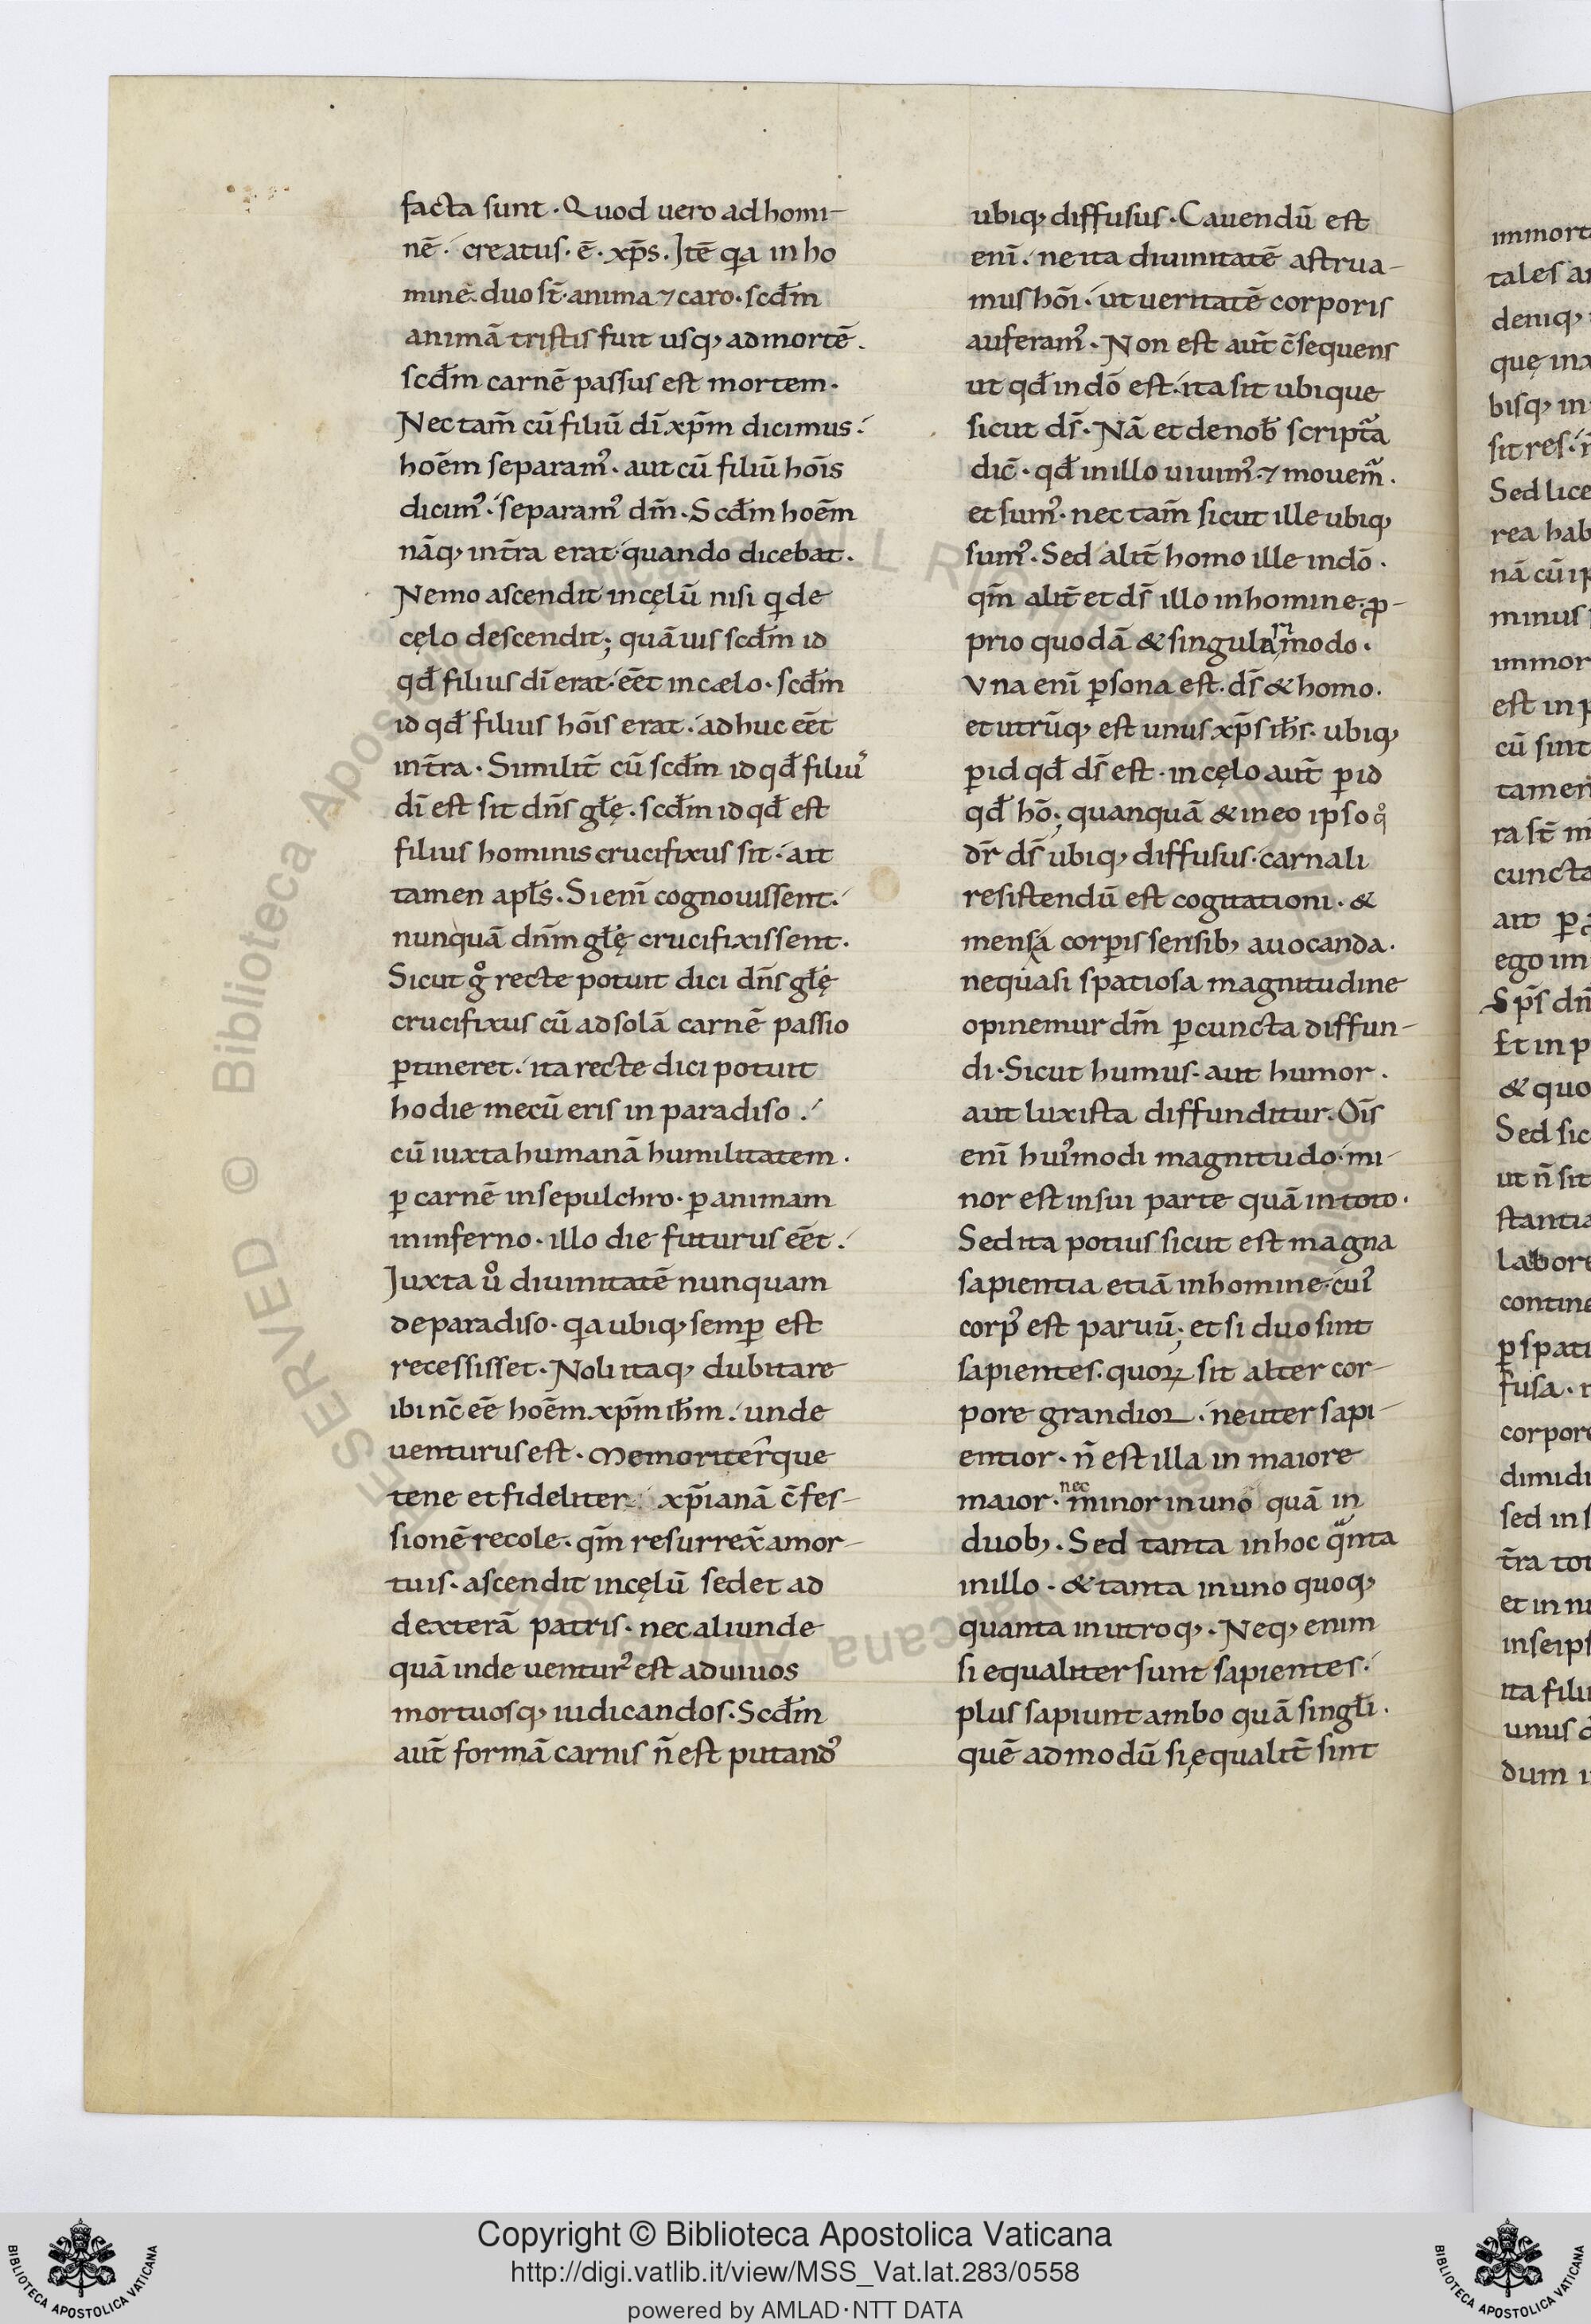 facta sunt · Quod uero ad homi-
nē · creatus · ē · xp̄s · Itē qa in ho
mine · duo st̄ · anima ⁊ caro · scd̄m
animā tristis fuit usq; ad mortē ·
scd̄m carnē passus est mortem ·
Nec tam̄ cū filiū dī xp̄m dicimus ·
hoēm separam᾽ · aut cū filiū hoīs
dicim᾽ · separam᾽ dm̄ · Scd̄m hoēm
nāq; in t̄ra erat quando dicebat ·
Nemo ascendit in cęlū nisi qi de
cęlo descendit; quāuis scd̄m id
qd̄ filius dī erat · eēt in cælo · scd̄m
id qd̄ filius hoīs erat · adhuc eēt
in t̄ra · Similit̄ cū scd̄m id qd̄ filiu᾽
dī est sit dn̄s gl̄ę · scd̄m id qd̄ est
filius hominis crucifixus sit · ait
tamen apl̄s · Si enī cognouissent ·
nunquā dn̄m gl̄ę crucifixissent ·
Sicut gͦ recte potuit dici dn̄s gl̄ę
crucifixus cū ad solā carnē passio
ꝑtineret · ita recte dici potuit
hodie mecū eris in paradiso ·
cū iuxta humanā humilitatem ·
ꝑ carnē in sepulchro · ꝑ animam
in inferno · illo die futurus eēt ·
Juxta uͦ diuinitatē nunquam
de paradiso · qa ubiq; semꝑ est
recessisset · Noli itaq; dubitare
ibi nc̄ eē hoēm xp̄m ih̄m · unde
uenturus est · Memoriterque
tene et fideliter xp̄ianā c̄fes-
sionē recole · qm̄ resurrex̄ a mor-
tuis · ascendit in cęlū sedet ad
dexterā patris · nec aliunde
quā inde uentur᾽ est ad uiuos
mortuosq; iudicandos · Scd̄m
aut̄ formā carnis n̄ est putand᾽
ubiq; diffusus · Cauendū est
enī · ne ita diuinitatē astrua-
mus hōi · ut ueritatē corporis
auferam᾽ · Non est aut̄ c̄sequens
ut qd̄ in dō est · ita sit ubique
sicut ds̄ · Nā et de nob̄ scriptᵃa
dic̄ · qd̄ in illo uiuim᾽ · ⁊ mouem̄ ·
et sum᾽ · nec tam̄ sicut ille ubiq;
sum᾽ · Sed alit̄ homo ille in dō ·
qm̄ alit̄ et ds̄ illo in homine · ꝓ-
prio quodā & singulari modo ·
Vna enī ꝑsona est · ds̄ & homo ·
et utrūq; est unus xp̄s ih̄s · ubiq;
ꝑ id qd̄ ds̄ est · in cęlo aut̄ ꝑ id
qd̄ hō; quanquā & in eo ipso qͦ
dr̄ ds̄ ubiq; diffusus · carnali
resistendū est cogitationi · &
mens a corꝑis sensib; auocanda ·
ne quasi spatiosa magnitudine
opinemur dm̄ ꝑ cuncta diffun-
di · Sicut humus · aut humor ·
aut lux ista diffunditur · Oīs
enī hui᾽modi magnitudo · mi-
nor est in sui parte quā in toto ·
Sed ita potius sicut est magna
sapientia etiā in homine · cui᾽
corp᾽ est paruū; et si duo sint
sapientes · quoꝝ sit alter cor-
pore grandior · neuter sapi-
entior · n̄ est illa in maiore
maior · nec minor in uno quā in
duob; · Sed tanta in hoc qᵃnta
in illo · & tanta in uno quoq;
quanta in utroq; · Neq; enim
si equaliter sunt sapientes ·
plus sapiunt ambo quā singl̄i ·
quē ad modū si ęqualit̄ sint
Copyright © Biblioteca Apostolica Vaticana
http://digi.vatlib.it/view/MSS_Vat.lat.283/0558
powered by AMLAD·NTT DATA